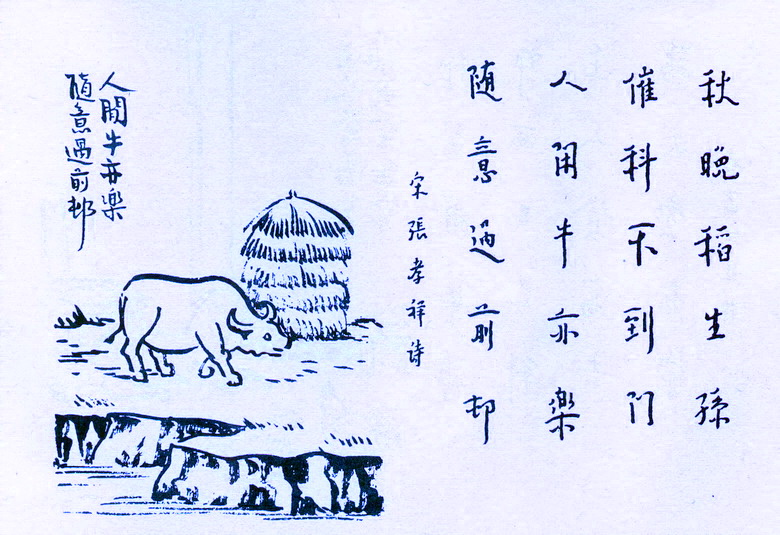 秋晚稻生孫
催科不到門
人閑牛亦樂
随意過前邨
宋張孝祥詩
人閒牛亦樂
随意過前邨